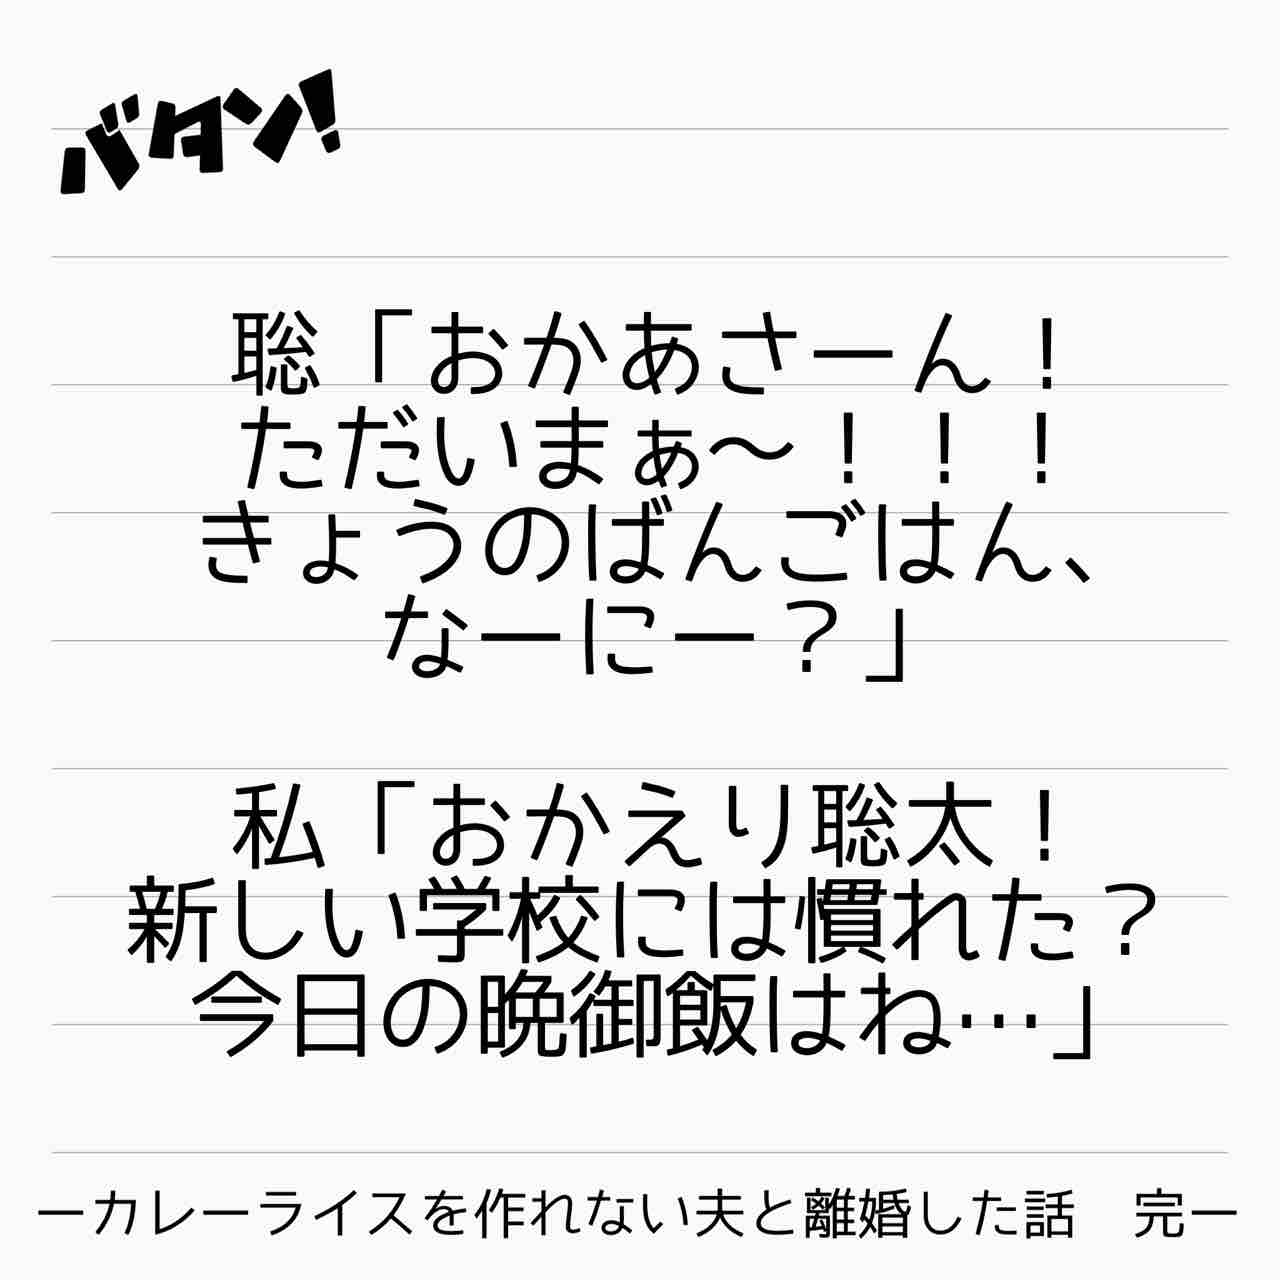 バタン!
聡「おかあさーん！
ただいまぁ〜！！！
きょうのばんごはん、
なーにー？」
私「おかえり聡太！
新しい学校には慣れた？
今日の晩御飯はね…」
ーカレーライスを作れない夫と離婚した話　完ー